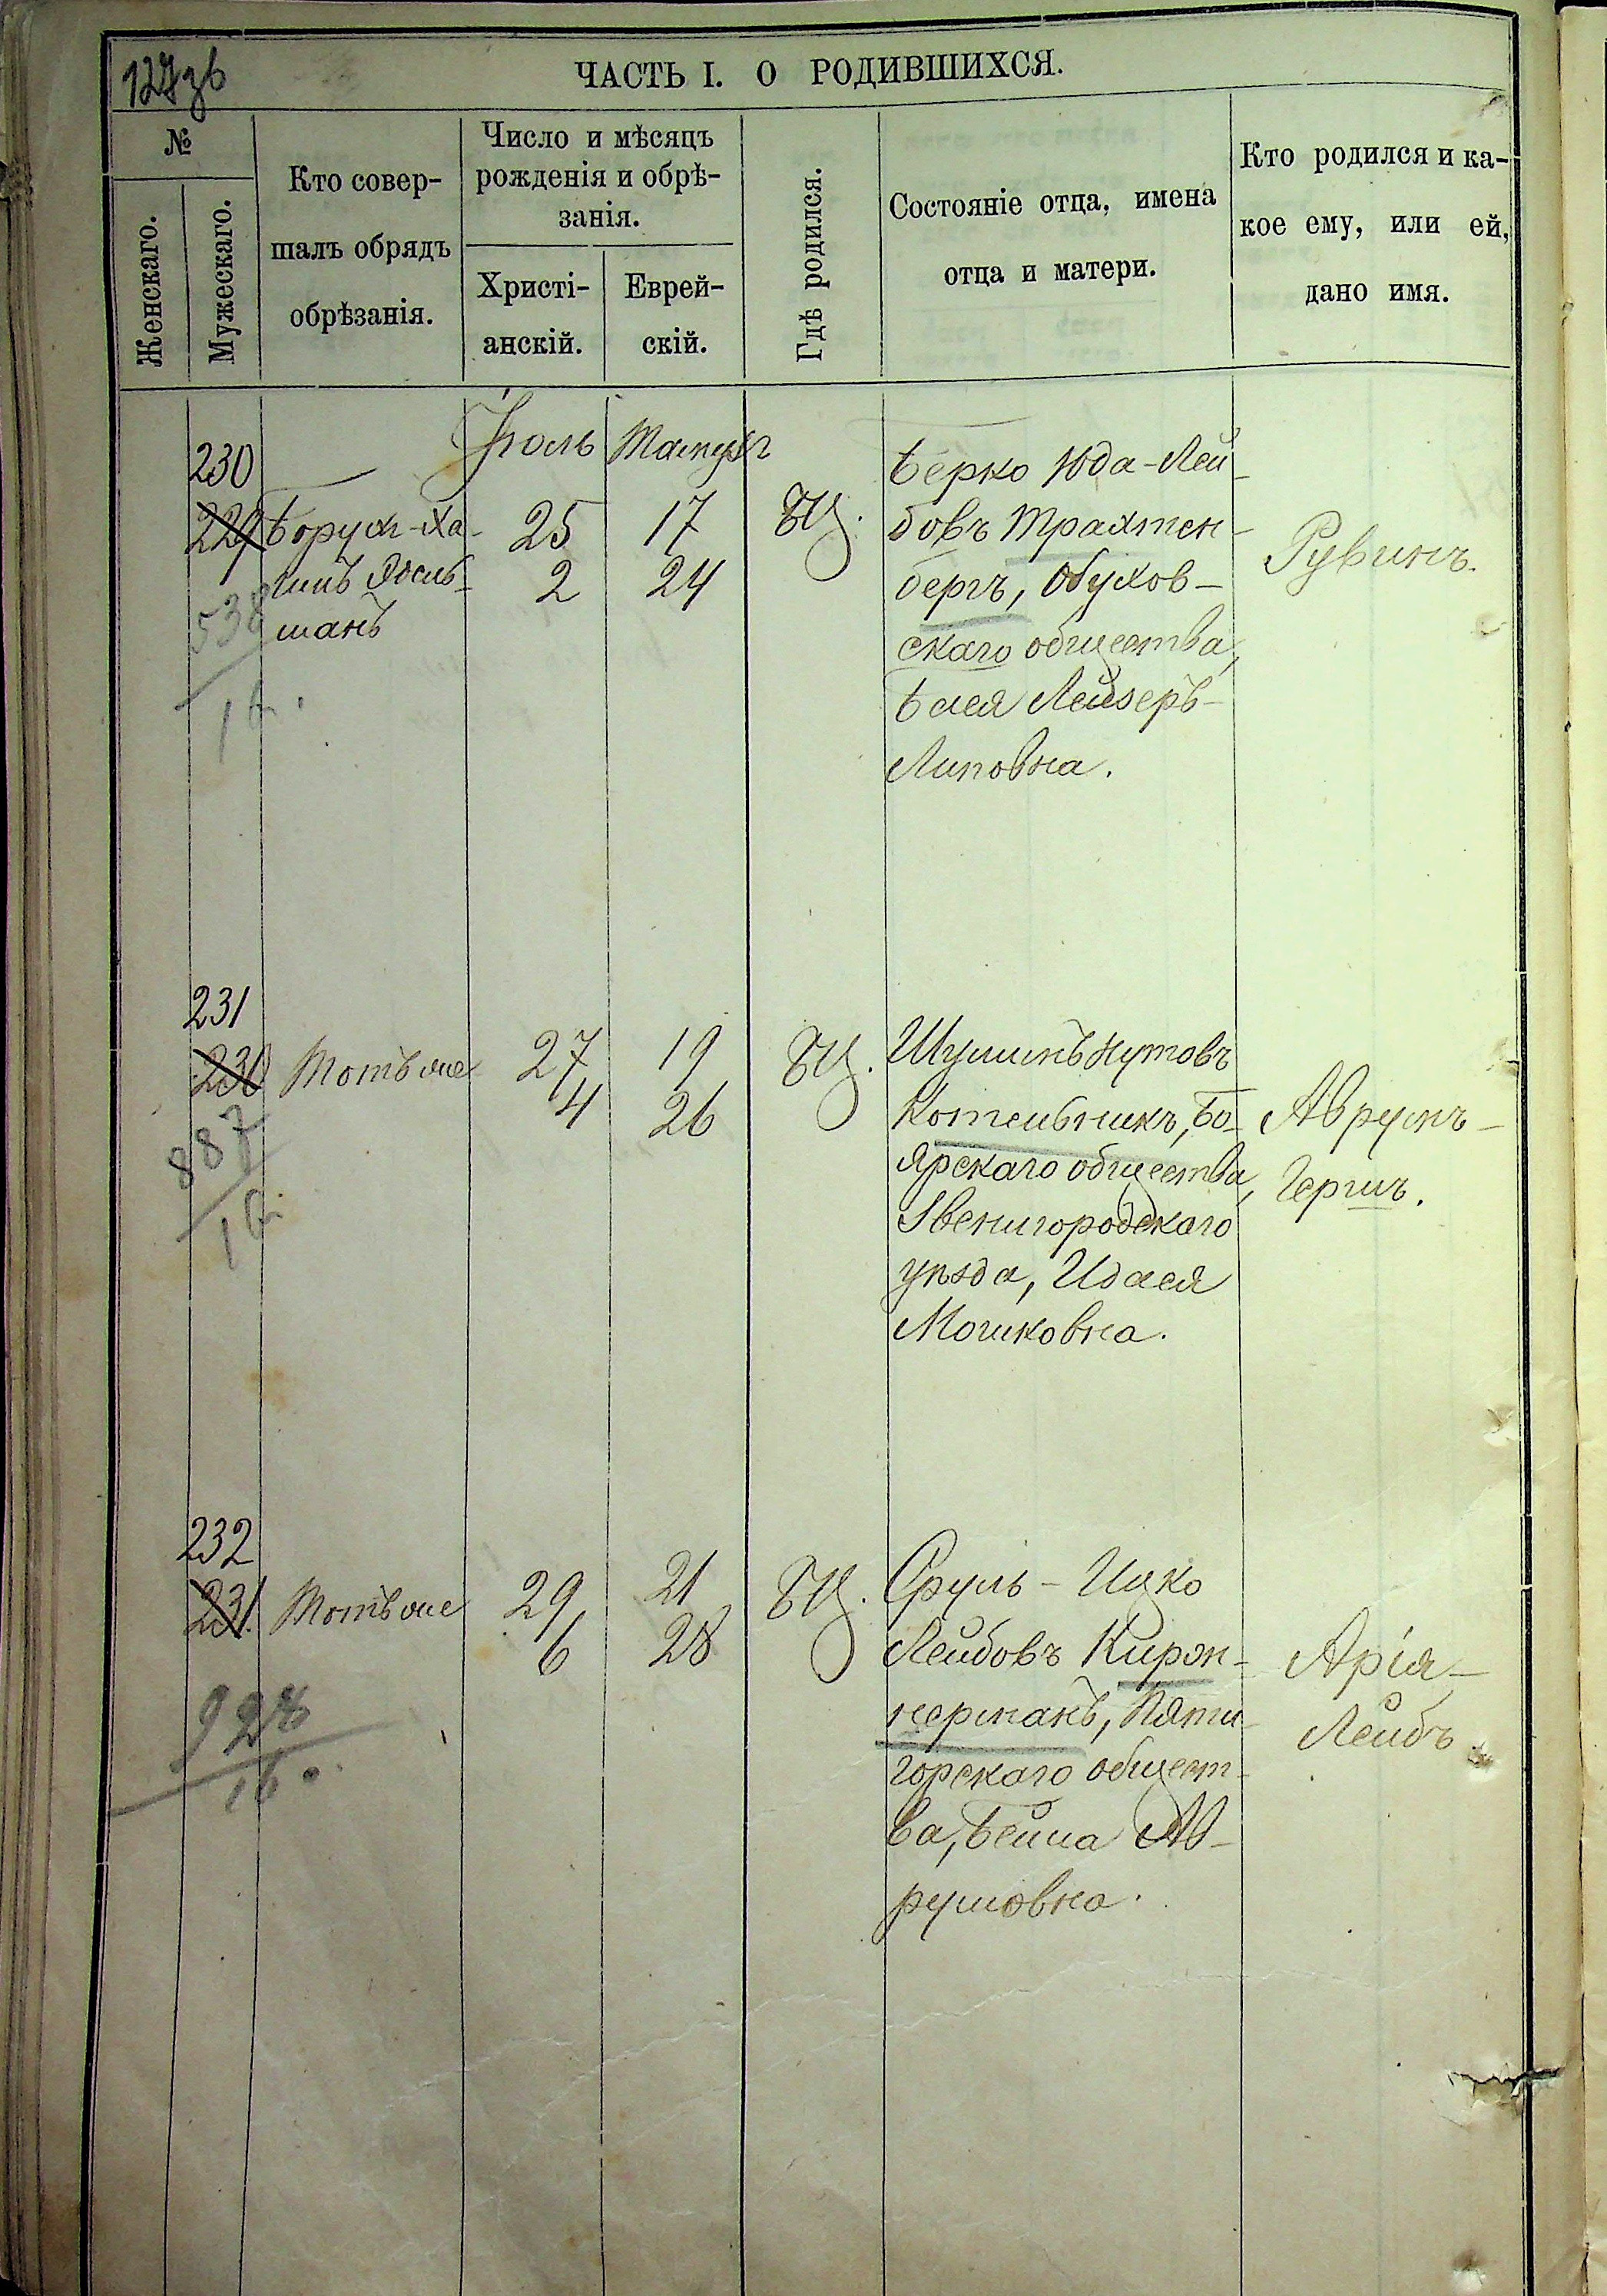 127 зв
ЧАСТЬ I. О РОДИВШИХСЯ.
№
Женскаго.
Мужескаго.
Кто совер-
шалъ обрядъ
обрѣзанія.
Число и мѣсяцъ
рожденія и обрѣ-
занія.
Христі-
анскій.
Еврей-
скій.
Гдѣ родился.
Состояніе отца, имена
отца и матери.
Кто родился и ка-
кое ему, или ей,
дано имя.
Іюль Тамузъ
230
229
538
Борухъ-Ха-
имъ
шанъ
25 17
2 24
БЦ.
Берко Юда-Лей-
бовъ Трахтен-
бергъ, Обухов-
скаго общества,
Бася Лейзеръ-
Липовна.
Рувинъ.
231
230
887
Тотъ же
27 19
4 26
БЦ.
Шулимъ Нутовъ
Котельникъ, Бо-
ярскаго общества,
Звенигородскаго
уѣзда, Идася
Мошковна.
Аврумъ-
Гершъ.
232
231
928
16.
Тотъ же
29 21
6 28
БЦ.
Сруль-Ицко
Лейбовъ Кирж-
нерманъ, Пяти-
горскаго общест-
ва, Бейла Ав-
румовна.
Арія-
Лейбъ